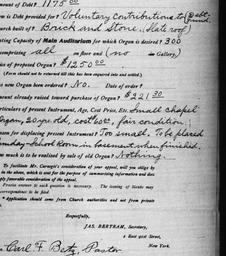 ount of Debt? 1175.00
ow is Debt provided for? Voluntary contributions to Debt-
urch built of? Brick and Stone. (Slate roof)
ating Capacity of Main Auditorium for which Organ is desired? 300
comprising all on floor and (no in Gallery.)
of proposed Organ? $1250.00
(Form should not be returned till this has been enquired into and settled.)
new Organ been ordered? No. Date of order?
ount already raised toward purchase of Organ? $221.30
rticulars of present Instrument, Age, Cost Price, Etc. Small Chapel
organ, 20 yrs old, cost $60.00, fair condition;
eason for displacing present Instrument? Too small. To be placed
unday-School room in basement when finished.
much is to be realized by sale of old Organ? Nothing
To facilitate Mr. Carnegie's consideration of your appeal, will you oblige by
in the above, which is used for the purpose of summarizing information and does
ply favorable consideration of the appeal.
Precise answer to each question is necessary. The issuing of blanks may
correspondence to be filed.
Application should come from Church authorities and not from private
Respectfully,
JAS. BERTRAM, Secretary,
2 East 91st Street,
New York.
Carl F. Betz, Pastor